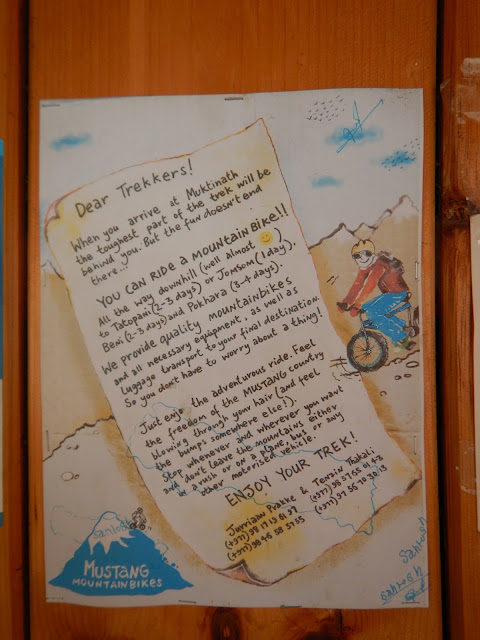 Dear Trekkers!
When you arrive at Muktinath
the toughest part of the trek will be
behind you. But the fun doesn't end
there...
YOU CAN RIDE A MOUNTAINBIKE!!
All the way downhill (well almost 🙂)
to Tatopani (2-3 days) or Jomsom (1 day).
Beni (2-3 days) and Pokhara (3-4 days).
We provide quality mountainbikes
and all necessary equipment, as well as
luggage transport to your final destination.
So you don't have to worry about a thing!
Just enjoy the adventurous ride. Feel
the freedom of the MUSTANG country
blowing through your hair (and feel
the bumps somewhere else!).
Stop whenever and wherever you want
and don't leave the mountains either
in a rush or on a plane, bus or any
other motorised vehicle.
ENJOY YOUR TREK!
Jurriaan Prakke & Tenzin Thakali
MUSTANG
MOUNTAINBIKES
santosh
santosh